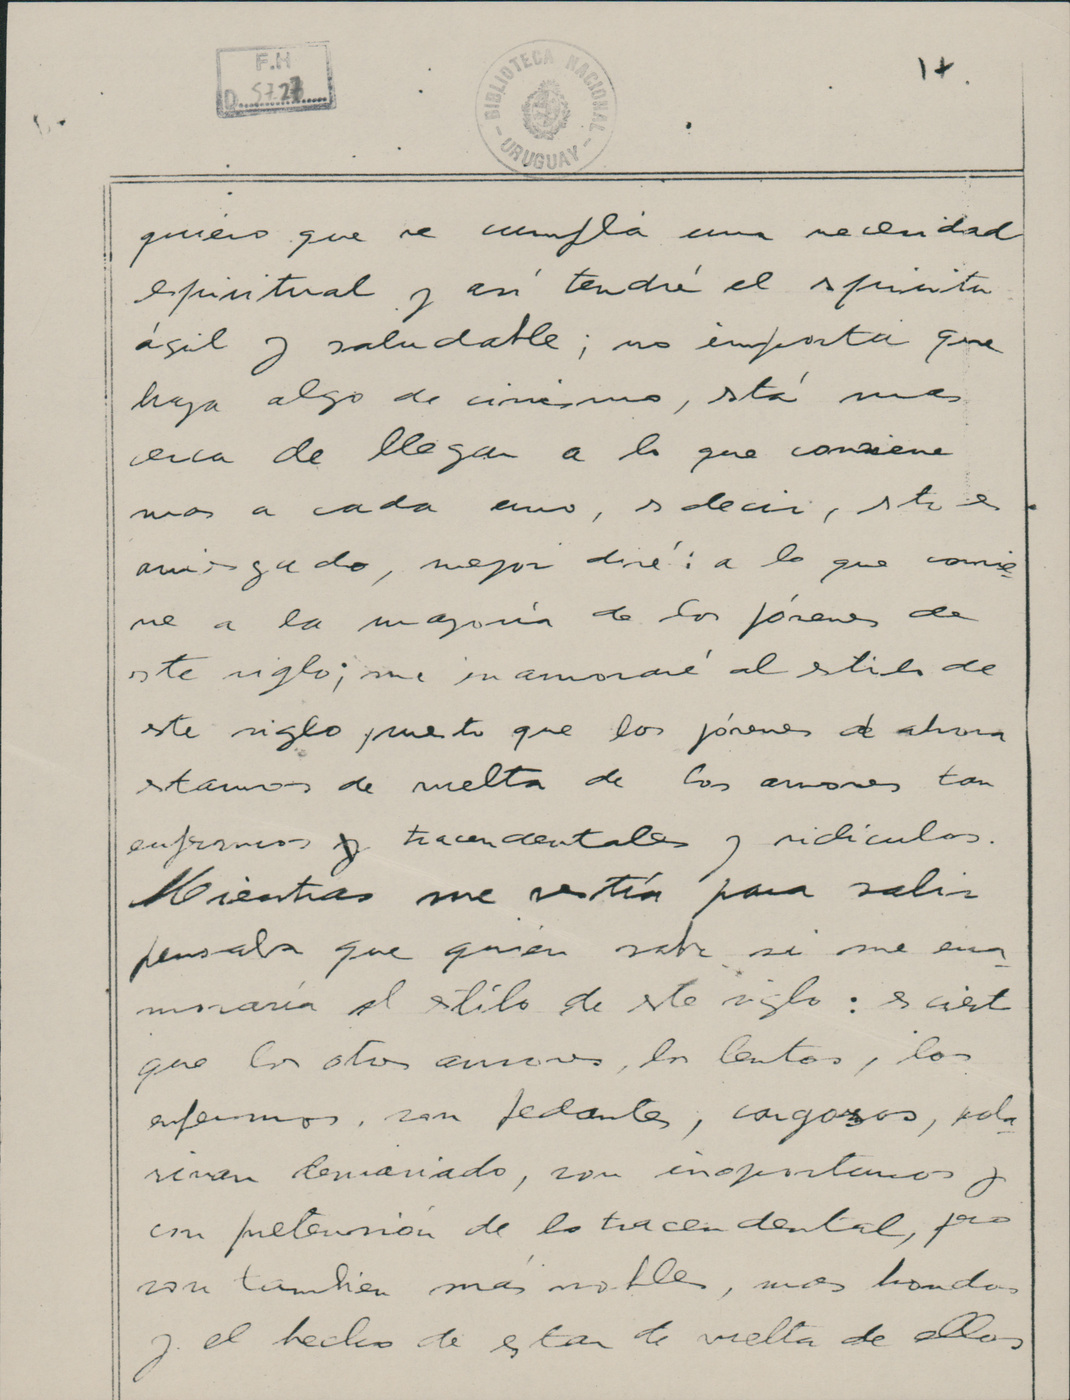 F.H
D. 5727
BIBLIOTECA NACIONAL
- URUGUAY -
17.
quiero que se cumpla una necesidad
espiritual y así tendré el espiritu
ágil y saludable; no importa que
haya algo de cinismo, está mas
cerca de llegar a lo que conviene
mas a cada uno, es decir, esto es
arriesgado, mejor diré: a lo que convie-
ne a la mayoría de los jóvenes de
este siglo; me enamoraré al estilo de
este siglo puesto que los jóvenes de ahora
estamos de vuelta de los amores tan
enfermos y tracendentales y ridículos.
Mientras me vestía para salir
pensaba que quien sabe si me ena-
moraría al estilo de este siglo: es cierto
que los otros amores, los lentos, los
enfermos, son pedantes, cargosos,
demasiado, son inoportunos y
con pretensión de lo tracendental, pero
son tambien más nobles, mas hondos
y el hecho de estar de vuelta de ellos